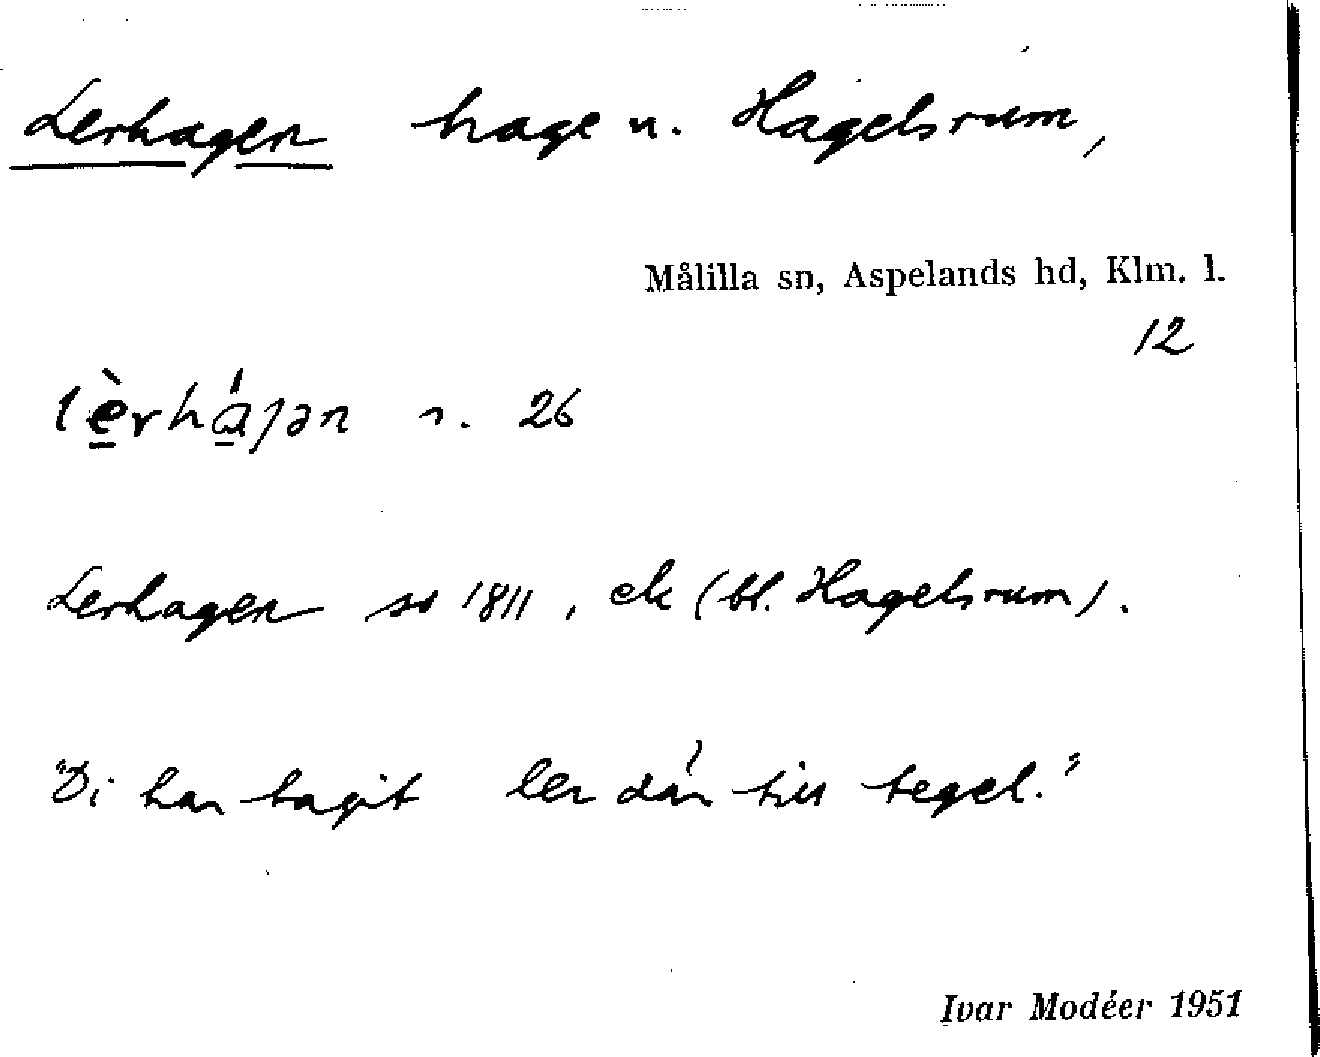 Lerhagen hage u. Hagelsrum,
Målilla sn, Aspelands hd, Klm. l.
12
lèrháʃən n. 26
Lerhagen so 1811, ek (bl. Hagelsrum).
"Di har tagit ler dán till tegel."
Ivar Modéer 1951